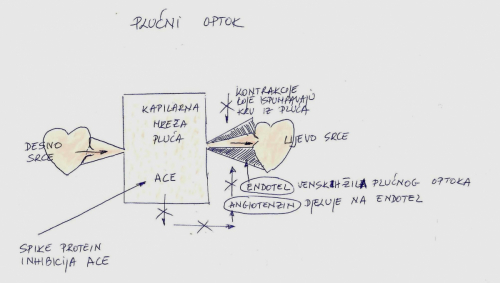 PLUĆNI OPTOK
KONTRAKCIJE
KOJE ISPUMPAVAJU
KRV IZ PLUĆA
KAPILARNA
MREŽA
PLUĆA
ACE
DESNO
SRCE
LIJEVO SRCE
ENDOTEL VENSKIH ŽILA PLUĆNOG OPTOKA
ANGIOTENZIN DJELUJE NA ENDOTEL
SPIKE PROTEIN
INHIBICIJA ACE